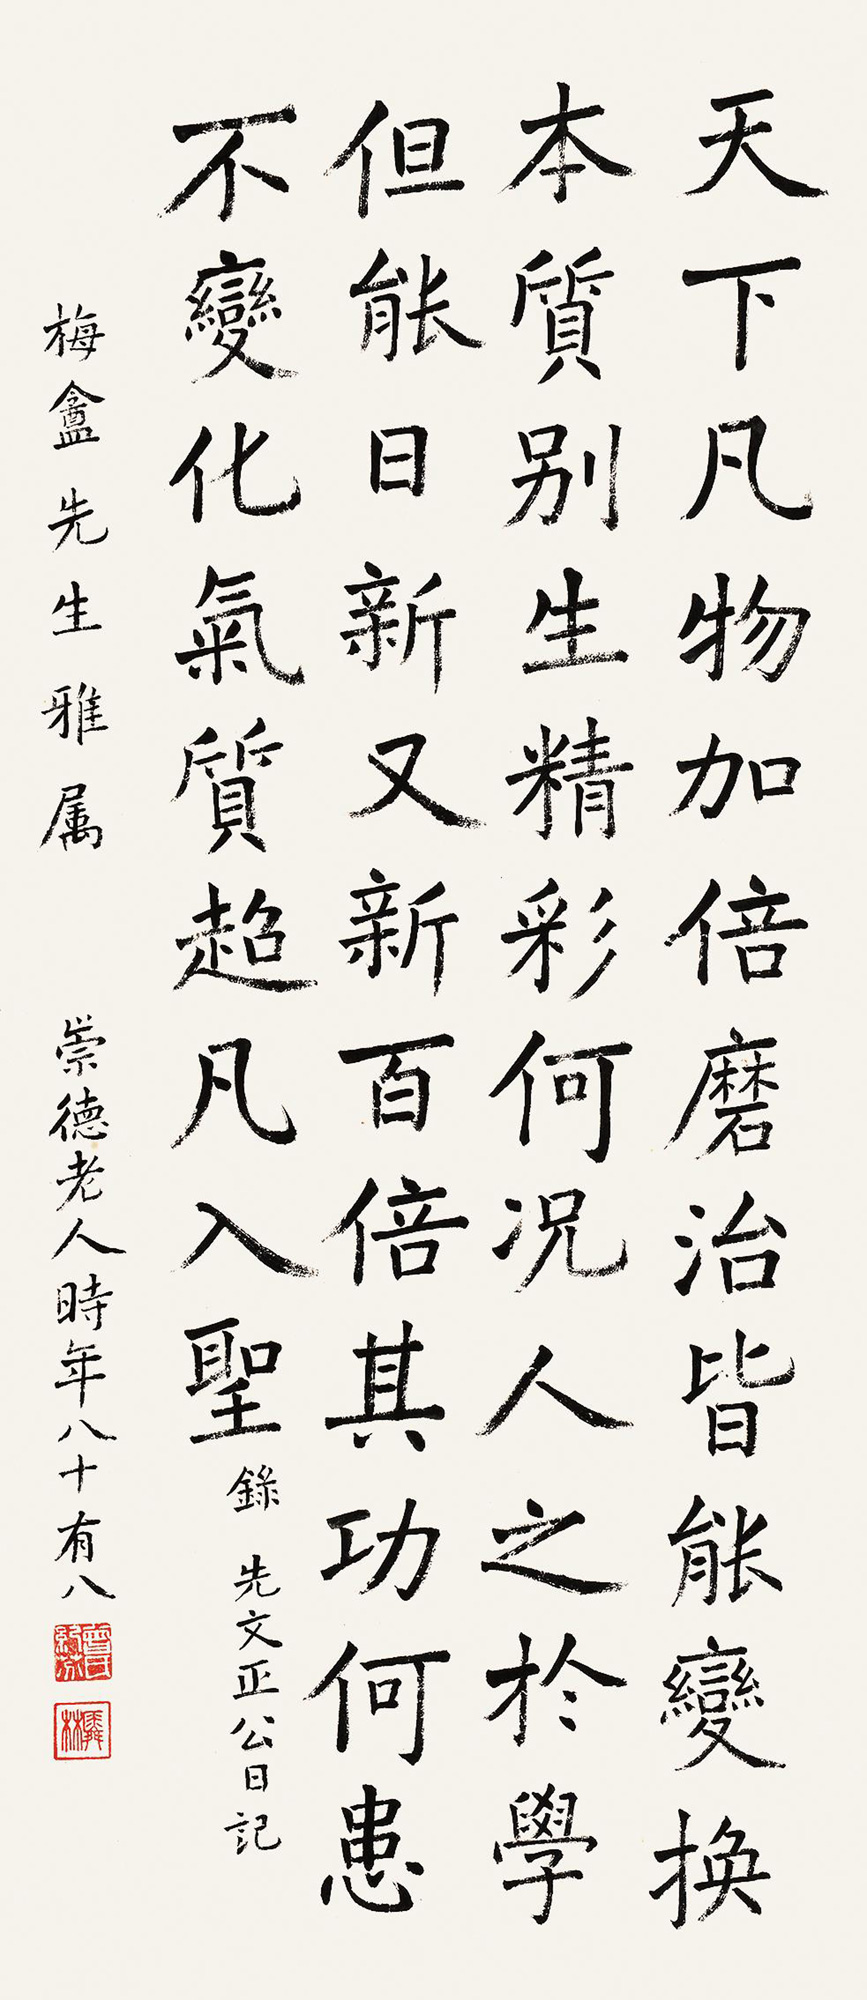 天下凡物加倍磨治皆能變換
本質别生精彩何況人之於學
但能日新又新百倍其功何患
不變化氣質超凡入聖
錄 先文正公日記
梅盦先生雅属
崇德老人時年八十有八
曾紀芬